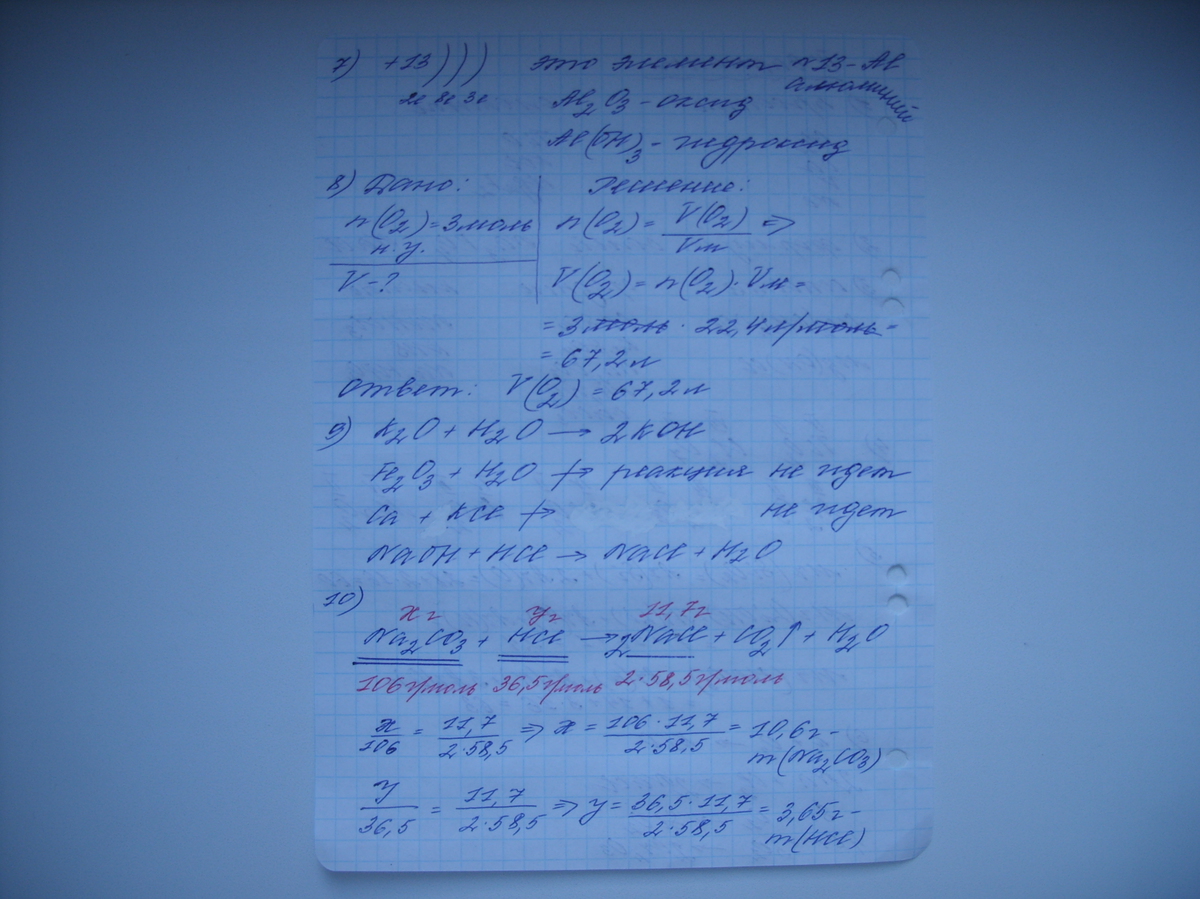 7) +13 ) ) ) это элемент №13 - Al
алюминий
2e 8e 3e Al₂O₃ - оксид
Al(OH)₃ - гидроксид
8) Дано: Решение:
n(O₂) = 3 моль n(O₂) = V(O₂)/Vм ⇒
н.у.
V - ? V(O₂) = n(O₂) · Vм =
= 3 моль · 22,4 л/моль =
= 67,2 л
Ответ: V(O₂) = 67,2 л
9) K₂O + H₂O → 2KOH
Fe₂O₃ + H₂O ↛ реакция не идет
Ca + KCl ↛ не идет
NaOH + HCl → NaCl + H₂O
10) x г y г 11,7 г
Na₂CO₃ + HCl → 2NaCl + CO₂↑ + H₂O
106 г/моль 36,5 г/моль 2·58,5 г/моль
x/106 = 11,7/2·58,5 ⇒ x = 106·11,7/2·58,5 = 10,6 г -
m(Na₂CO₃)
y/36,5 = 11,7/2·58,5 ⇒ y = 36,5·11,7/2·58,5 = 3,65 г -
m(HCl)